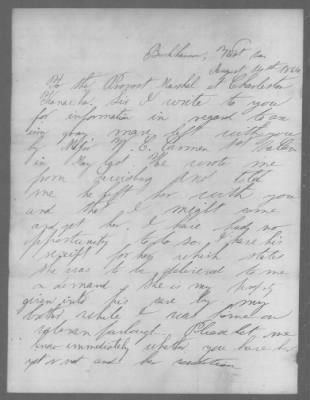 Buckhannon, West Va.
August 14th 1864
To the Provost Marshal at Charleston
Kanawha. Sir I write to you
for information in regard to an
gray mare left with you
by N. C. 1st
in May last. He wrote me
from and told
me he left her with you
and that I might come
and get her. I have had no
opportunity to do so. I have his
receipt for her which states
she was to be delivered to me
on demand she is my property
given into his care by my
while I was home on
veteran furlough. Please let me
know immediately whether you have her
yet or not and her condition